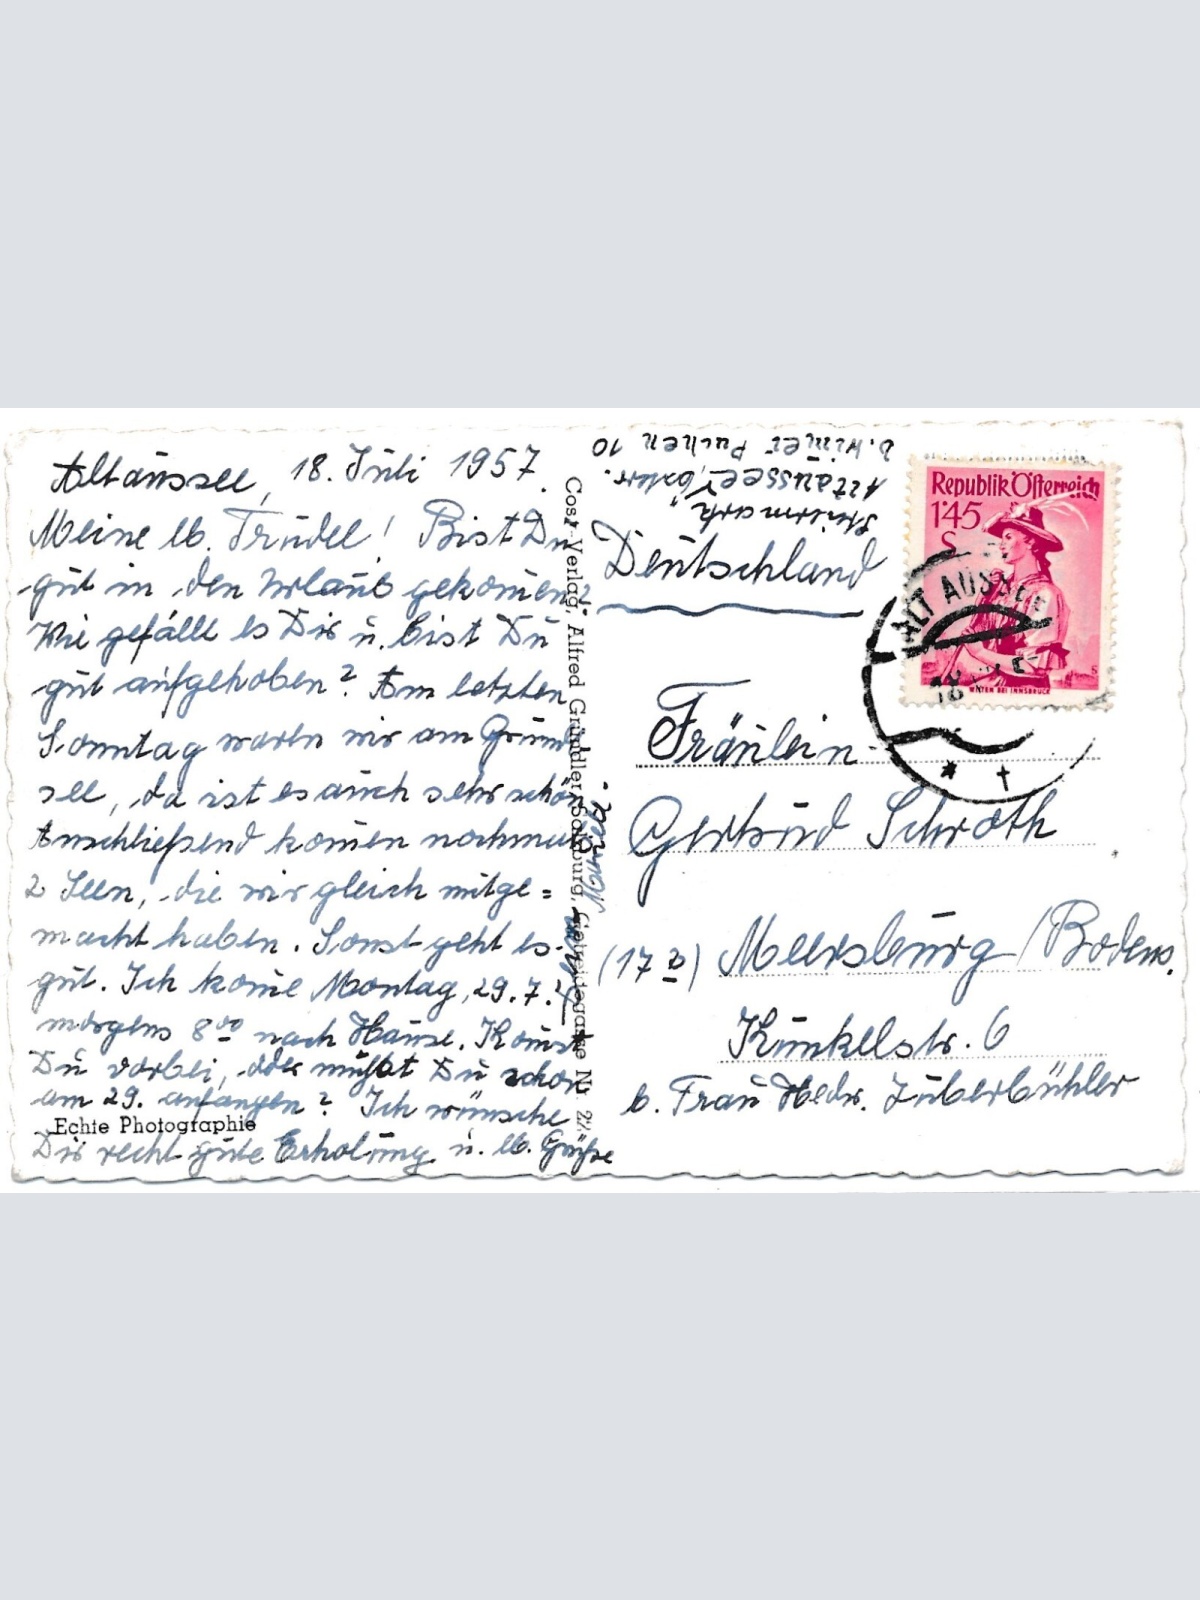 Altaussee, 18. Juli 1957.
Meine lb. Trudel! Bist Du
gut in den Urlaub gekommen?
Wie gefällt es Dir u. bist Du
gut aufgehoben? Am letzten
Sonntag waren wir am Grund
see, da ist es auch sehr schön
Anschließend kommen nochmal
2 Seen, die wir gleich mitge=
macht haben. Sonst geht es
gut. Ich komme Montag, 29.7.
morgens 8⁰⁰ nach Hause. Kommst
Du vorbei, oder mußt Du schon
am 29. anfangen? Ich wünsche
Dir recht gute Erholung u. lb. Grüße
Echte Photographie
Cosy-Verlag, Alfred Gründler, Salzburg, Getreidegasse Nr. 22
b. Wimer Puchen 10
Altaussee, Österr.
Steiermark
Deutschland
Republik Österreich
1'45
S
WILTEN BEI INNSBRUCK
ALT AUSSEE
Fräulein
Gertrud Schroth
(17 b) Meersburg/Bodens.
Kunkelstr. 6
b. Frau Hedw. Zuberbühler